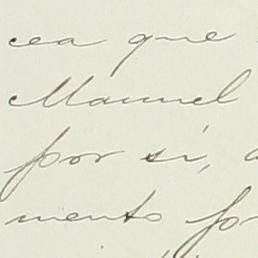 cea que
Manuel
por si,
mento for